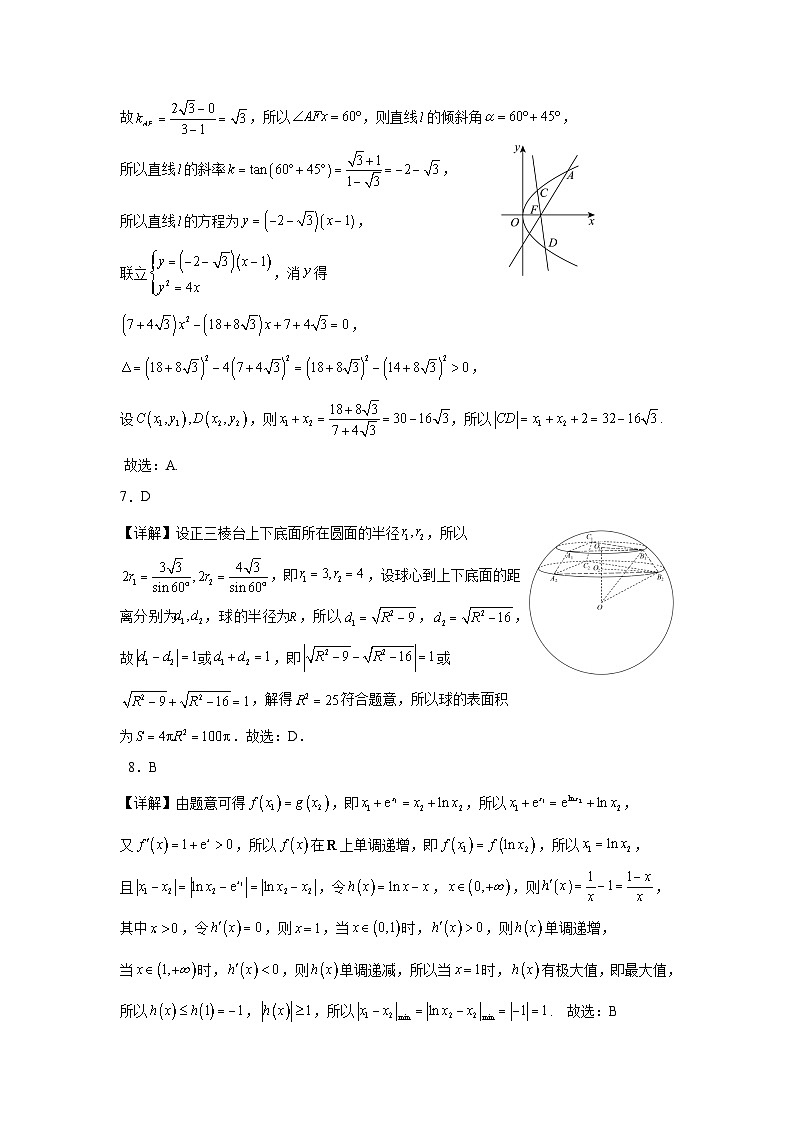 故 k_{AF} = \frac{2\sqrt{3}-0}{3-1} = \sqrt{3}，所以∠AFx = 60°，则直线 l 的倾斜角 α = 60°+45°，
所以直线 l 的斜率 k = tan(60°+45°) = \frac{\sqrt{3}+1}{1-\sqrt{3}} = -2-\sqrt{3}，
所以直线 l 的方程为 y = (-2-\sqrt{3})(x-1)，
联立 \begin{cases} y = (-2-\sqrt{3})(x-1) \\ y^2 = 4x \end{cases}，消 y 得
(7+4\sqrt{3})x^2-(18+8\sqrt{3})x+7+4\sqrt{3}=0，
Δ = (18+8\sqrt{3})^2-4(7+4\sqrt{3})^2 = (18+8\sqrt{3})^2-(14+8\sqrt{3})^2 > 0，
设 C(x_1,y_1),D(x_2,y_2)，则 x_1+x_2 = \frac{18+8\sqrt{3}}{7+4\sqrt{3}} = 30-16\sqrt{3}，所以 |CD| = x_1+x_2+2 = 32-16\sqrt{3}.
故选：A.
y
A
C
F
O
x
D
7．D
【详解】设正三棱台上下底面所在圆面的半径 r_1,r_2，所以
2r_1 = \frac{3\sqrt{3}}{\sin 60°}, 2r_2 = \frac{4\sqrt{3}}{\sin 60°}，即 r_1 = 3, r_2 = 4，设球心到上下底面的距
离分别为 d_1,d_2，球的半径为 R，所以 d_1 = \sqrt{R^2-9}，d_2 = \sqrt{R^2-16}，
故 |d_1-d_2| = 1 或 d_1+d_2 = 1，即 |\sqrt{R^2-9}-\sqrt{R^2-16}| = 1 或
\sqrt{R^2-9}+\sqrt{R^2-16} = 1，解得 R^2 = 25 符合题意，所以球的表面积
为 S = 4πR^2 = 100π．故选：D．
O
8．B
【详解】由题意可得 f(x_1) = g(x_2)，即 x_1+e^{x_1} = x_2+\ln x_2，所以 x_1+e^{x_1} = e^{\ln x_2}+\ln x_2，
又 f′(x) = 1+e^x > 0，所以 f(x) 在 R 上单调递增，即 f(x_1) = f(\ln x_2)，所以 x_1 = \ln x_2，
且 |x_1-x_2| = |\ln x_2-e^{x_1}| = |\ln x_2-x_2|，令 h(x) = \ln x-x，x∈(0,+∞)，则 h′(x) = \frac{1}{x}-1 = \frac{1-x}{x}，
其中 x > 0，令 h′(x) = 0，则 x = 1，当 x∈(0,1) 时，h′(x) > 0，则 h(x) 单调递增，
当 x∈(1,+∞) 时，h′(x) < 0，则 h(x) 单调递减，所以当 x = 1 时，h(x) 有极大值，即最大值，
所以 h(x) ≤ h(1) = -1，|h(x)| ≥ 1，所以 |x_1-x_2|_{min} = |\ln x_2-x_2|_{min} = |-1| = 1． 故选：B